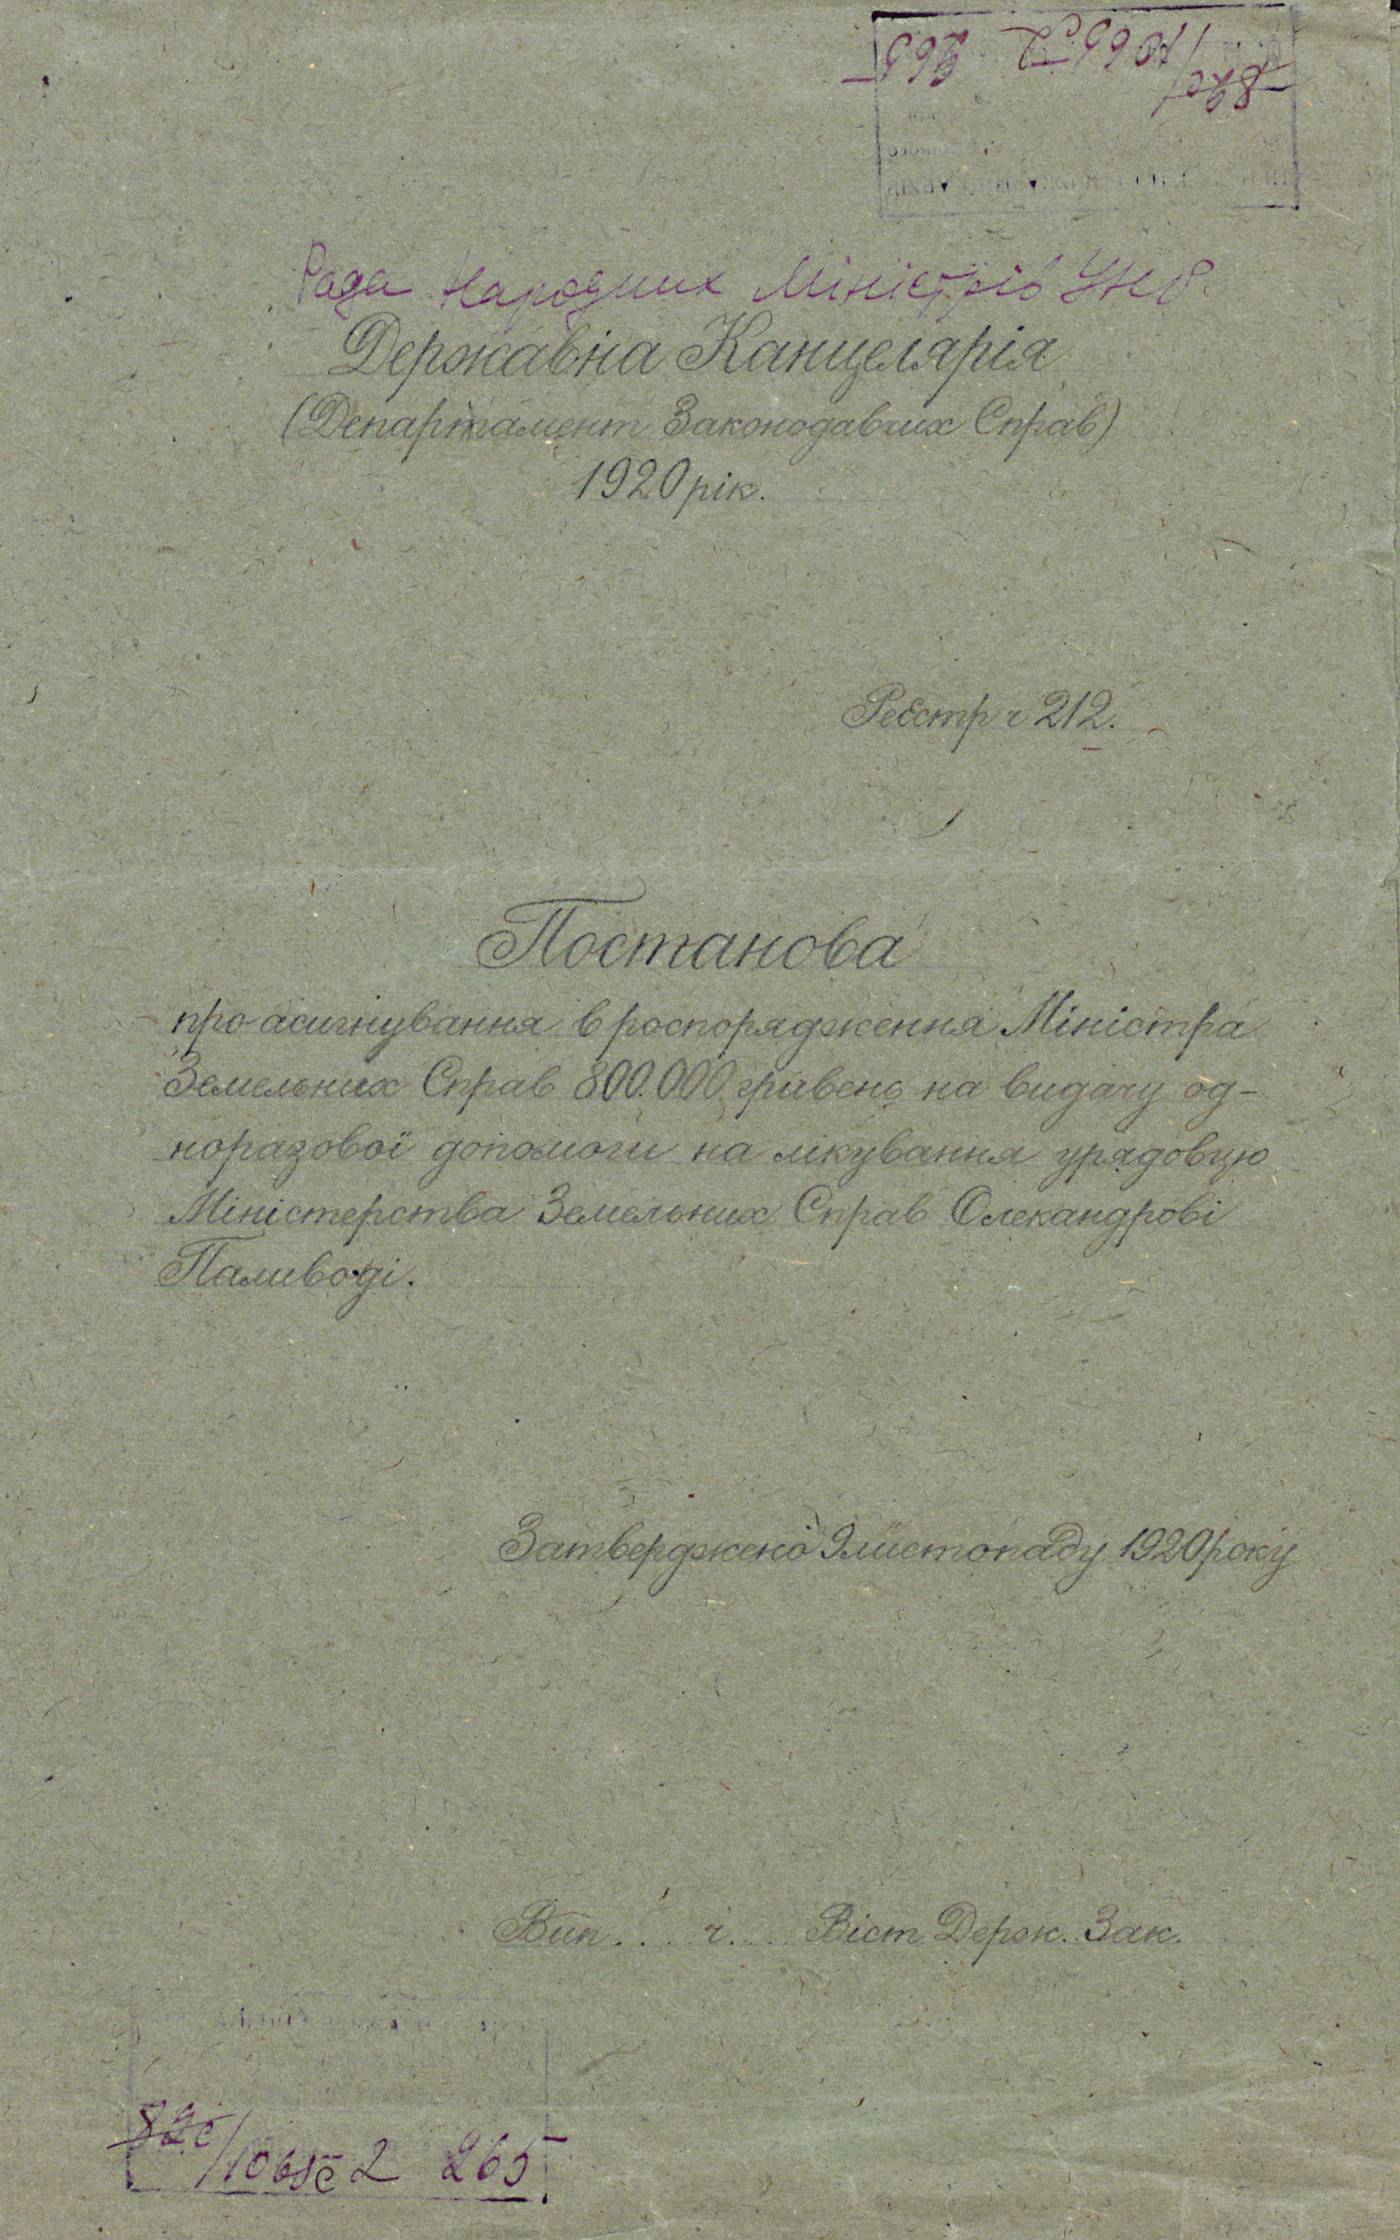 Рада Народних Міністрів УНР
Державна Канцелярія
(Департамент Законодавчих Справ)
1920 рік.
Реєстр ч 212.
Постанова
про асигнування в роспорядження Міністра
Земельних Справ 800.000 гривень на видачу од-
норазової допомоги на лікування урядовцю
Міністерства Земельних Справ Олександрові
Паливоді.
Затверджено 9 листопаду 1920 року
Вип... ч... Віст. Держ. Зак.
1065с 2 265